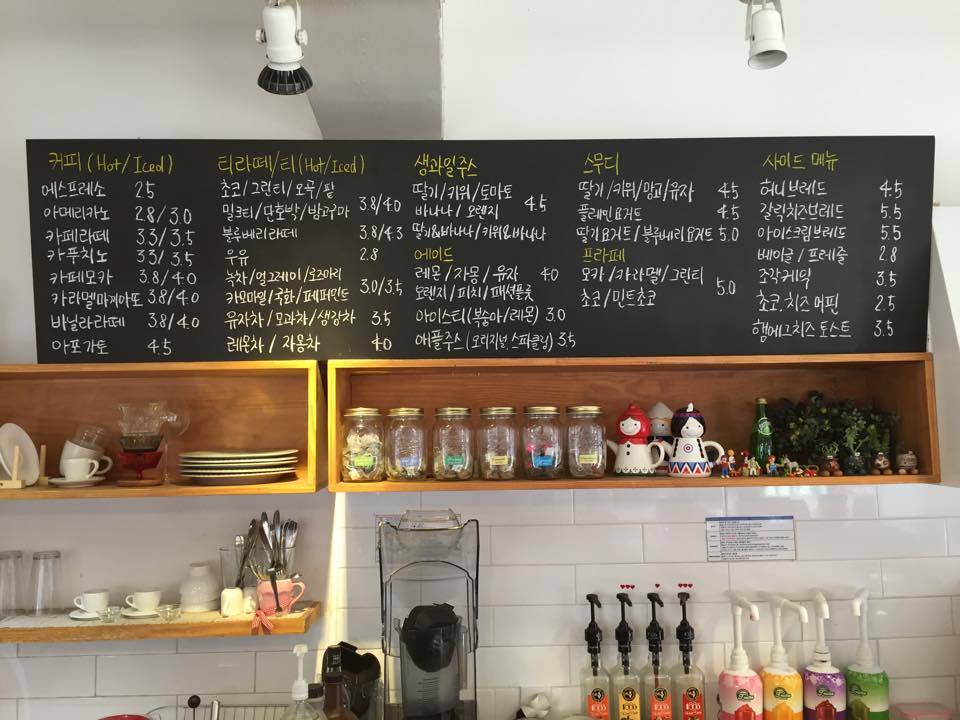 커피 (Hot/Iced)
에스프레소 2.5
아메리카노 2.8/3.0
카페라떼 3.3/3.5
카푸치노 3.3/3.5
카페모카 3.8/4.0
카라멜마끼아또 3.8/4.0
바닐라라떼 3.8/4.0
아포가토 4.5
티라떼/티 (Hot/Iced)
초코/그린티/오곡/팥
밀크티/단호박/밤고구마 3.8/4.0
블루베리라떼 3.8/4.3
우유 2.8
녹차/얼그레이/로즈마리
카모마일/국화/페퍼민트 3.0/3.5
유자차/모과차/생강차 3.5
레몬차/자몽차 4.0
생과일주스
딸기/키위/토마토
바나나/오렌지 4.5
딸기&바나나/키위&바나나
에이드
레몬/자몽/유자 4.0
오렌지/피치/패션풀룻
아이스티(복숭아/레몬) 3.0
애플주스(오리지널, 스파클링) 3.5
스무디
딸기/키위/망고/유자 4.5
플레인요거트 4.5
딸기요거트/블루베리요거트 5.0
프라페
모카/카라멜/그린티
초코/민트초코 5.0
사이드 메뉴
허니브레드 4.5
갈릭치즈브레드 5.5
아이스크림브레드 5.5
베이글/프레즐 2.8
조각케익 3.5
초코,치즈 머핀 2.5
햄에그치즈 토스트 3.5